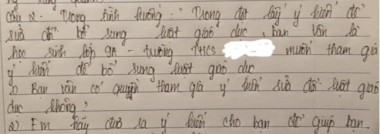 câu 2 - Trong tình huống: "Trong đợt lấy ý kiến để
sửa đổi bổ sung luật giáo dục, bạn Vân là
học sinh lớp 9A - trường THCS muốn tham gia
ý kiến để bổ sung luật giáo dục
1) Bạn vân có quyền tham gia ý kiến sửa đổi luật giáo
dục không?
2) Em hãy đưa ra ý kiến cho bạn để giúp bạn.